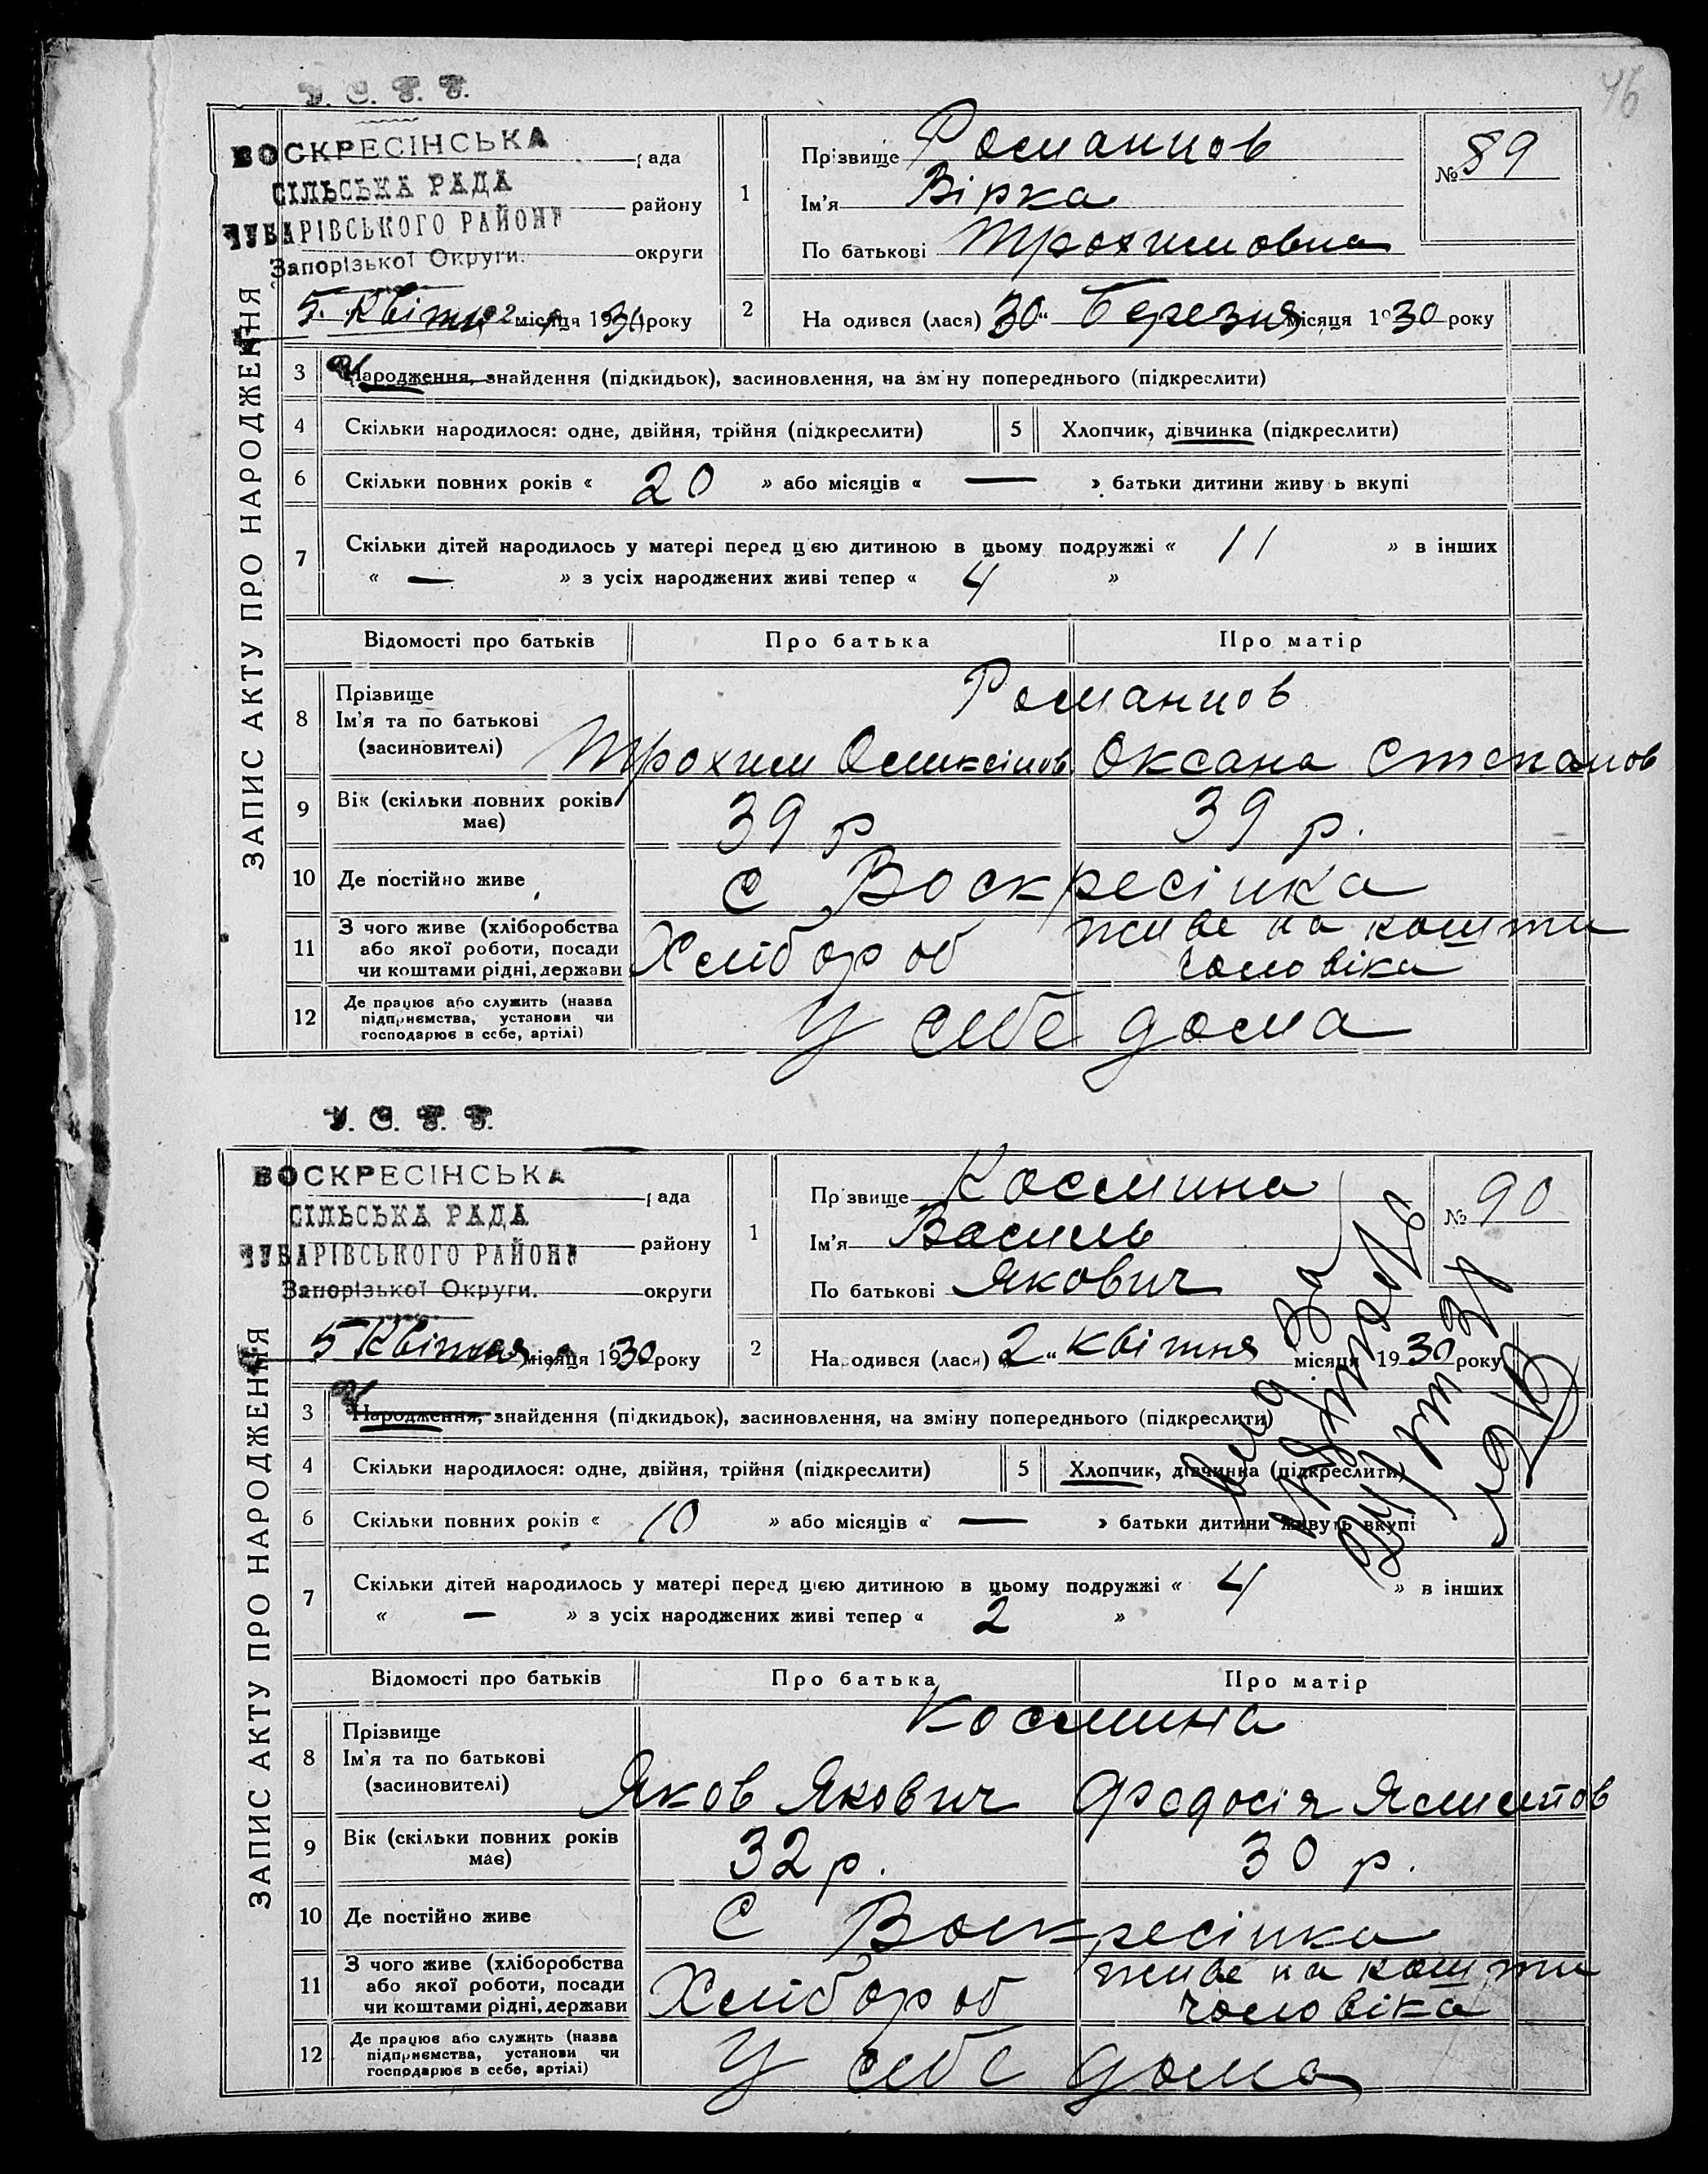 46
У. С. Р. Р.
ВОСКРЕСІНСЬКА рада
СІЛЬСЬКА РАДА
ЧУБАРІВСЬКОГО РАЙОНУ району
Запорізької Округи. округи
5 Квітня місяця 1930 року
ЗАПИС АКТУ ПРО НАРОДЖЕННЯ
1 Прізвище Романцов
Ім'я Вірка
По батькові Трохимовна
№ 89
2 Народився (лася) 30 " Березня місяця 1930 року
3 Народження, знайдення (підкидьок), засиновлення, на зміну попереднього (підкреслити)
4 Скільки народилося: одне, двійня, трійня (підкреслити) 5 Хлопчик, дівчинка (підкреслити)
6 Скільки повних років « 20 » або місяців « — » батьки дитини живуть вкупі
7 Скільки дітей народилось у матері перед цією дитиною в цьому подружжі « 11 » в інших
« — » з усіх народжених живі тепер « 4 »
Відомості про батьків Про батька Про матір
8 Прізвище Романцов
Ім'я та по батькові
(засиновителі) Трохим Оксана Степанов
9 Вік (скільки повних років має) 39 р 39 р.
10 Де постійно живе С Воскресінка
11 З чого живе (хліборобства
або якої роботи, посади
чи коштами рідні, держави Хлібороб живе на кошти
чоловіка
12 Де працює або служить (назва
підприємства, установи чи
господарює в себе, артілі) У себе дома
У. С. Р. Р.
ВОСКРЕСІНСЬКА рада
СІЛЬСЬКА РАДА
ЧУБАРІВСЬКОГО РАЙОНУ району
Запорізької Округи. округи
5 Квітня місяця 1930 року
ЗАПИС АКТУ ПРО НАРОДЖЕННЯ
1 Прізвище Космина
Ім'я Василь
По батькові Якович
№ 90
2 Народився (лася) 2 " квітня місяця 1930 року
3 Народження, знайдення (підкидьок), засиновлення, на зміну попереднього (підкреслити)
4 Скільки народилося: одне, двійня, трійня (підкреслити) 5 Хлопчик, дівчинка (підкреслити)
6 Скільки повних років « 10 » або місяців « — » батьки дитини живуть вкупі
7 Скільки дітей народилось у матері перед цією дитиною в цьому подружжі « 4 » в інших
« — » з усіх народжених живі тепер « 2 »
Відомості про батьків Про батька Про матір
8 Прізвище Космина
Ім'я та по батькові
(засиновителі) Яков Якович Федосія
9 Вік (скільки повних років має) 32 р. 30 р.
10 Де постійно живе С Воскресінка
11 З чого живе (хліборобства
або якої роботи, посади
чи коштами рідні, держави Хлібороб живе на кошти
чоловіка
12 Де працює або служить (назва
підприємства, установи чи
господарює в себе, артілі) У себе дома